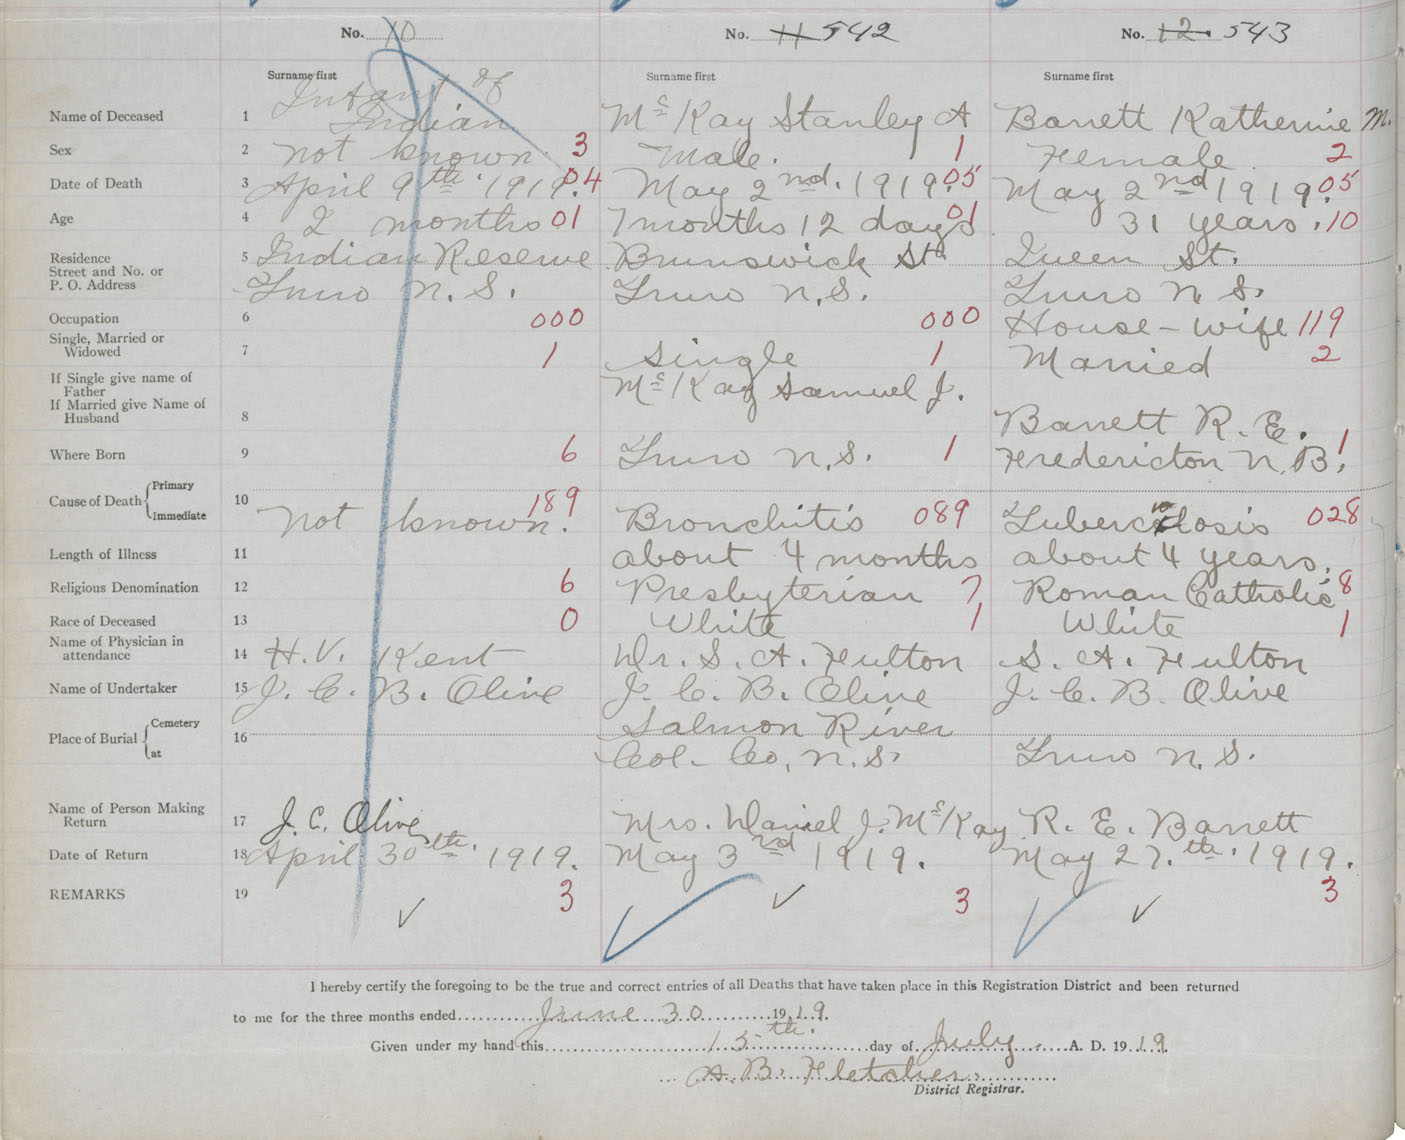 No. 10 No. 11 542 No. 12. 543
Surname first Surname first Surname first
Infant of
Name of Deceased 1 Indian McKay Stanley A Barrett Katherine M.
Sex 2 not known. 3 Male. 1 Female 2
Date of Death 3 April 9th. 1919. 04 May 2nd. 1919. 05 May 2nd 1919. 05
Age 4 2 months 01 7 months 12 days 01 31 years. 10
Residence 5 Indian Reserve Brunswick St. Queen St.
Street and No. or
P. O. Address Truro N. S. Truro N. S. Truro N. S.
Occupation 6 000 000 House-wife 119
Single, Married or
Widowed 7 1 Single 1 Married 2
If Single give name of
Father McKay Samuel J.
If Married give Name of
Husband 8 Barrett R. E.
Where Born 9 6 Truro N. S. 1 Fredericton N. B. 1
Cause of Death Primary
Immediate 10 not known. 189 Bronchitis 089 Tuberculosis 028
Length of Illness 11 about 4 months about 4 years.
Religious Denomination 12 6 Presbyterian 7 Roman Catholic 8
Race of Deceased 13 0 White 1 White 1
Name of Physician in
attendance 14 H. V. Kent Dr. S. A. Fulton S. A. Fulton
Name of Undertaker 15 J. C. B. Olive J. C. B. Olive J. C. B. Olive
Place of Burial Cemetery Salmon River
at 16 Col. Co. N. S. Truro N. S.
Name of Person Making
Return 17 J. C. Olive Mrs. Daniel J. McKay R. E. Barrett
Date of Return 18 April 30th. 1919. May 3rd 1919. May 27.th. 1919.
REMARKS 19 3 3 3
I hereby certify the foregoing to be the true and correct entries of all Deaths that have taken place in this Registration District and been returned
to me for the three months ended June 30 1919.
Given under my hand this 15th. day of July A. D. 1919.
A. B. Fletcher.
District Registrar.